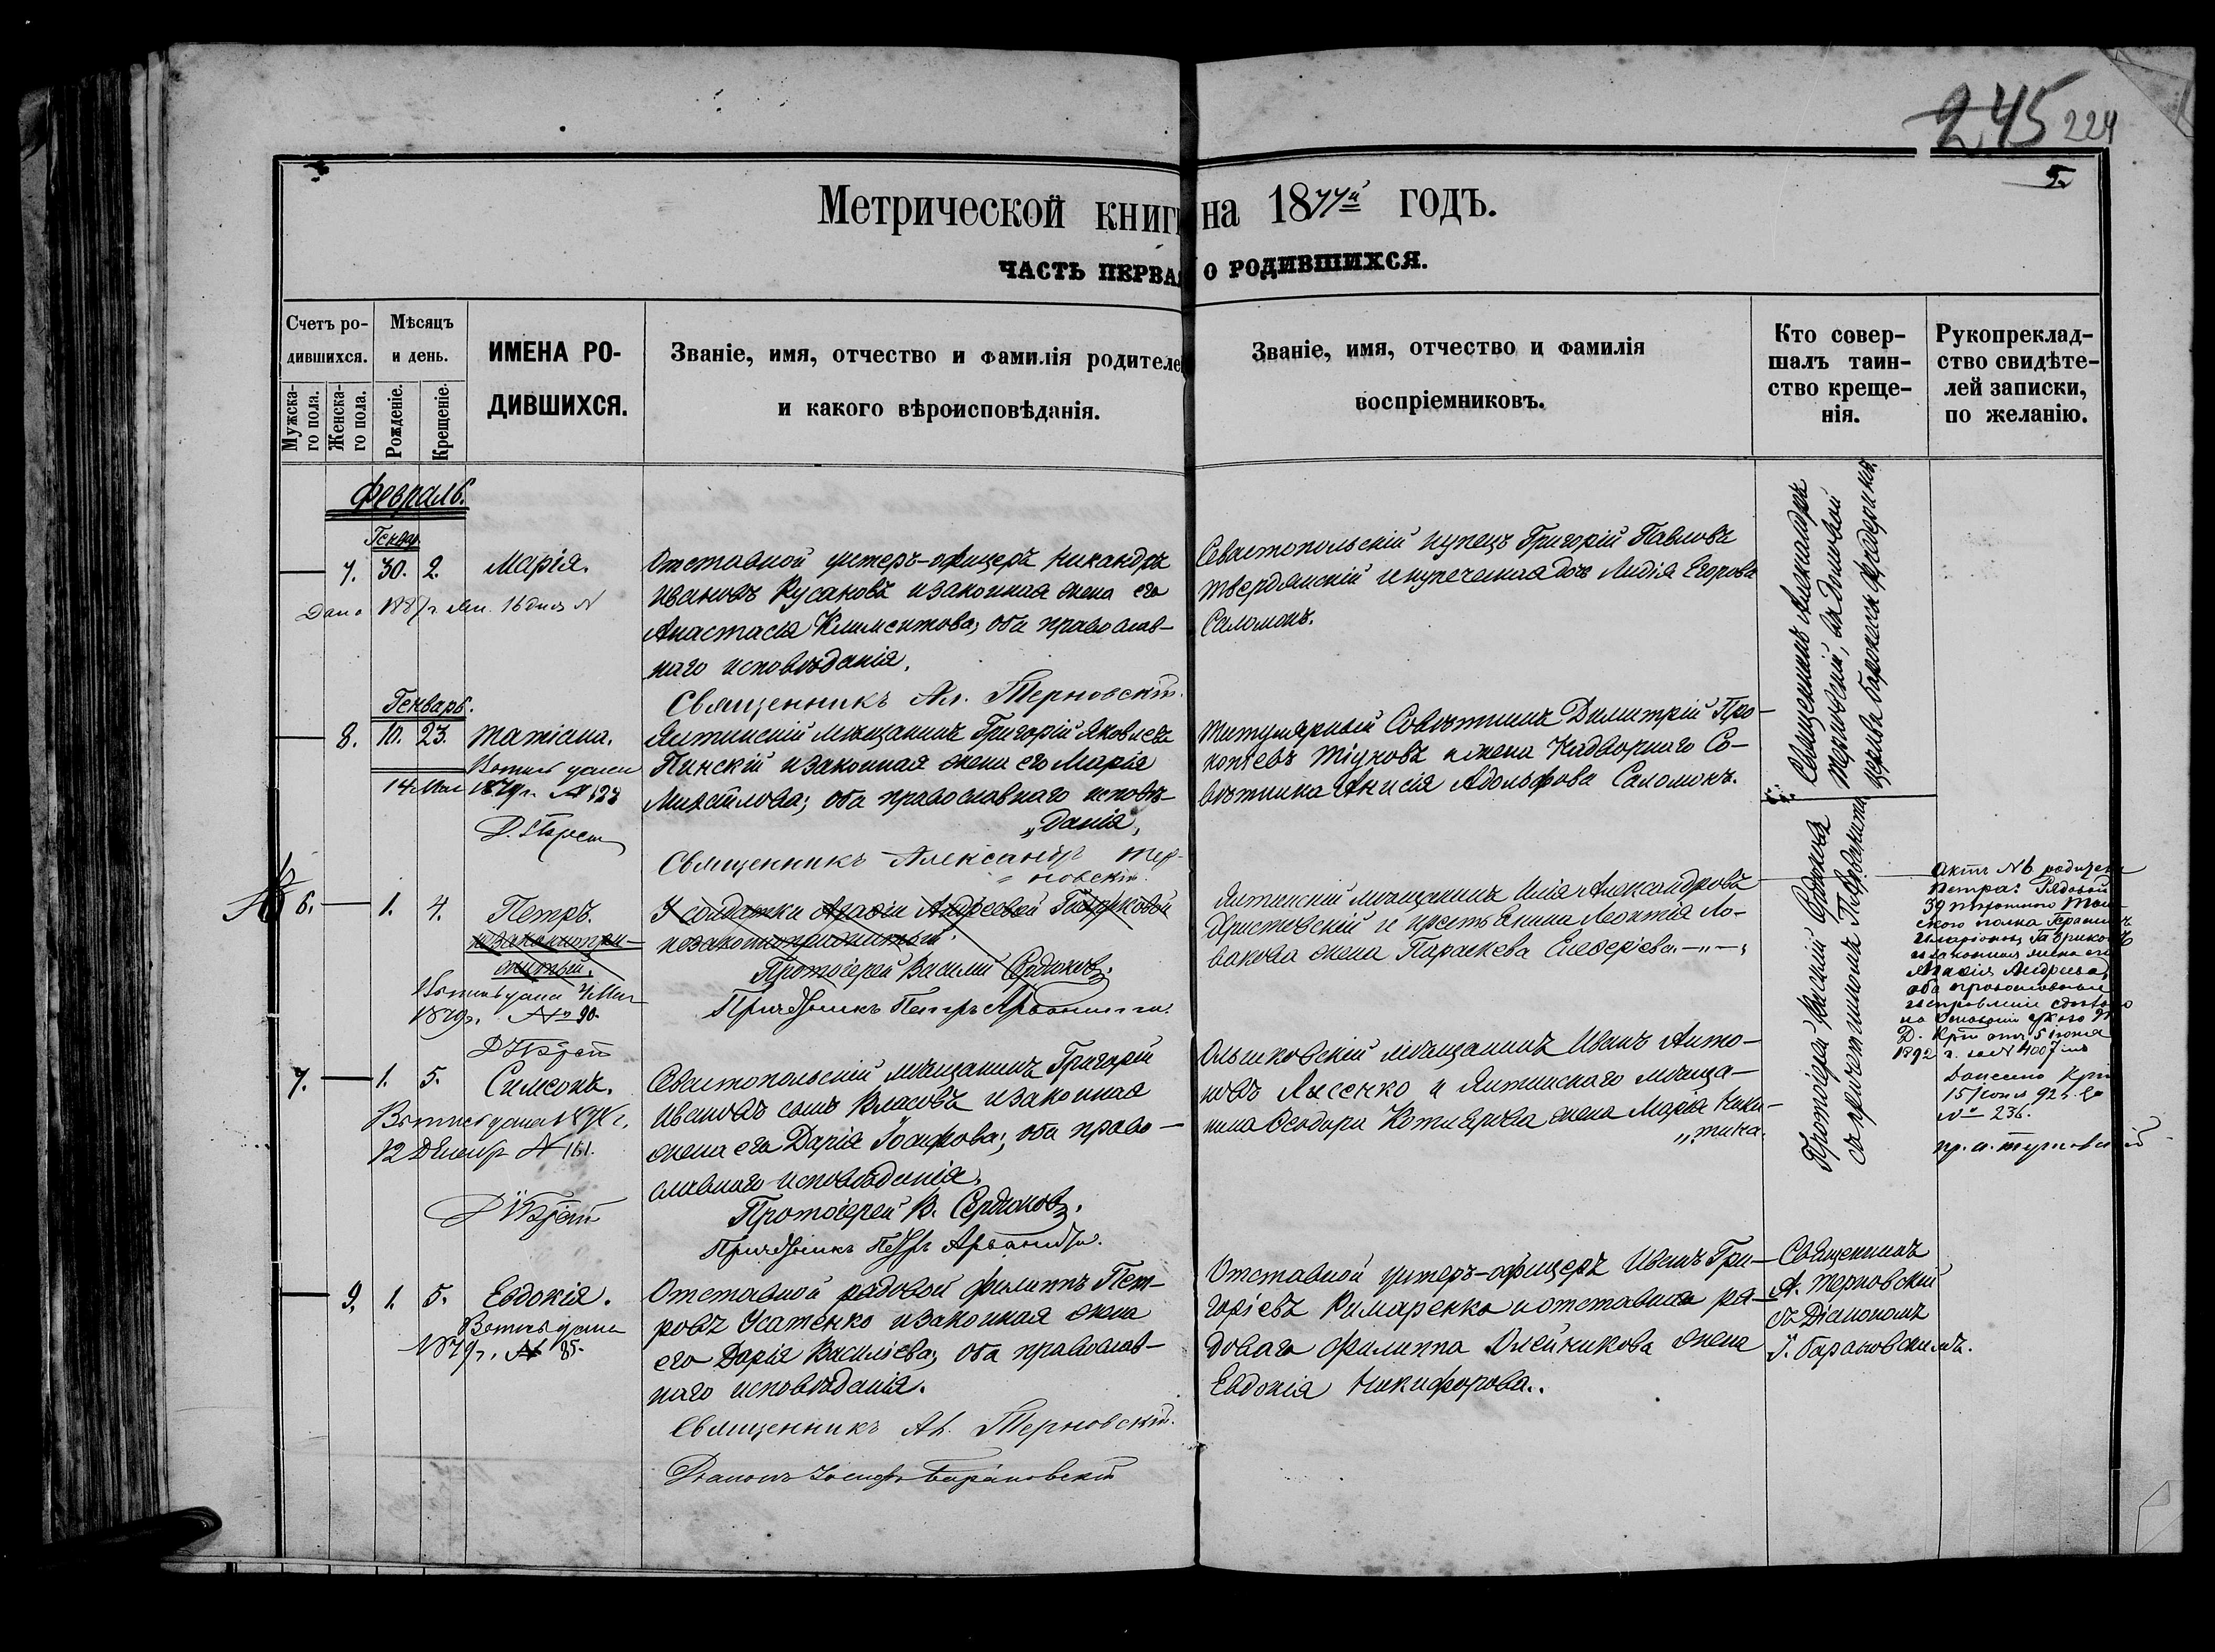 245 224
5.
Метрической книги на 1877й годъ.
ЧАСТЬ ПЕРВАЯ О РОДИВШИХСЯ.
Счетъ ро-
дившихся.
Мужска-
го пола.
Женска-
го пола.
Мѣсяцъ
и день.
Рожденіе.
Крещеніе.
ИМЕНА РО-
ДИВШИХСЯ.
Званіе, имя, отчество и фамилія родителе
и какого вѣроисповѣданія.
Званіе, имя, отчество и фамилія
воспріемниковъ.
Кто совер-
шалъ таин-
ство креще-
нія.
Рукопреклад-
ство свидѣте-
лей записки,
по желанію.
Февраль.
Генвар
7. 30. 2. Марія.
Дано 1887 г 16 дня №
Отставной унтеръ-офицеръ Никандръ
Ивановъ Кусаковъ и законная жена его
Анастасія Климентова, оба православ-
наго исповѣданія.
Священникъ Ал. Терновскій.
Севастопольскій купецъ Григорій Павловъ
Твердянскій и купеческая дочь Лидія Егорова
Саломонъ.
Священникъ Александръ
Терновскій, съ
Генварь.
8. 10. 23. Татіана.
Выпись дана
14 Мая 1879 г. № 123
Ялтинскій мѣщанинъ Григорій Яковлевъ
Пинскій и законная жена его Марія
Михайлова; оба православнаго исповѣ-
„данія,
Священникъ Александръ Тер-
новскій.
Титулярный Совѣтникъ Димитрій Про-
копіевъ Тіуновъ и жена Надворнаго Со-
вѣтника Анисія Адольфова Саломонъ.
6. 1. 4. Петръ.
незаконнопри-
житый.
Выпись дана 4 Мая
1879 г. № 90.
У солдатки Агафіи Андреевой
незаконноприжитый.
Протоіерей Василій Сердюковъ.
Причетникъ Петръ Арванити.
Ялтинскій мѣщанинъ Илія Александровъ
Христовскій и крестьянина Леонтія Ло-
вакова жена Параскева Елевѳріева.
Протоіерей Василій Сердюковъ
съ причетникомъ П. Арванити
Актъ № 6 родителя
Петра: Рядовой
39 пѣхотнаго Том-
скаго полка Герасимъ
и законная жена его
Агафія Андреева,
оба православные
исправленіе сдѣлано
на основаніи указа
Д. К. отъ 5 іюня
1892 г. за № 4007
Донесено
15 Іюня 92 г. за
№ 236.
7. 1. 5. Симеонъ.
Выпись дана 1878 г.
12 Декабр № 161.
Севастопольскій мѣщанинъ Григорій
Ивановъ сынъ Власовъ и законная
жена его Дарія Іосифова; оба право-
славнаго исповѣданія.
Протоіерей В. Сердюковъ.
Причетникъ Петръ Арванити.
Мѣщанинъ Иванъ Анто-
новъ Лысенко и Ялтинскаго мѣща-
нина Ѳеодора Котлярова жена Марія Ники-
„тина.
9. 1. 5. Евдокія.
Выпись дана
1879 г. № 85.
Отставной рядовой Филиппъ Пет-
ровъ Усатенко и законная жена
его Дарія Василіева; оба православ-
наго исповѣданія.
Священникъ Ал. Терновскій.
Діаконъ Іосифъ Барановскій
Отставной унтеръ-офицеръ Иванъ Гри-
горіевъ Римаренко и отставнаго ря-
доваго Филиппа Олейникова жена
Евдокія Никифорова.
Священникъ
А. Терновскій
съ Діакономъ
І. Барановскимъ.